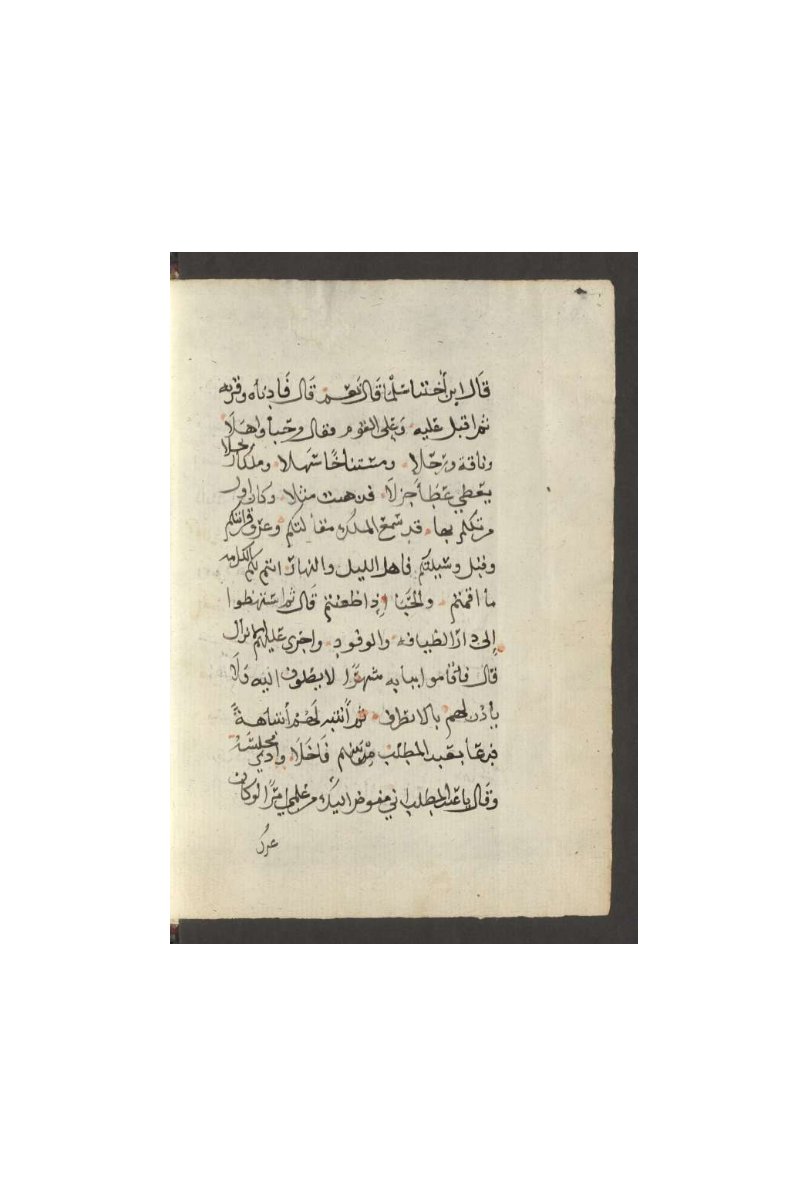 قال ابن أختنا سلما قال نعم قال فادناه وقربه
ثم اقبل عليه وعلى القوم فقال مرحبا واهلا
وناقة ورحلا ومستناخا سهلا وملكا ربحلا
يعطي عطاء جزلا فذهبت مثلا وكان اول
من تكلم بها قد سمع الملك مقالتكم وعرف قرابتكم
وقبل وسيلتكم فاهل الليل والنهار انتم لكم الكرامه
ما اقمتم والحبا إذا ظعنتم قال ثم استنهظوا
إلى دار الظيافه والوفود واجرى عليهم الانزال
قال فاقاموا ببابه شهرا لا يصلون اليه ولا
يأذن لهم بالانظراف ثم أنتبه لهم أنتباهة
فدعا بعبد المطلب من بينهم فاخلا وادني مجلسه
وقال يا عبد المطلب اني مفوض اليك من علمي امرا لو كان
غيرك